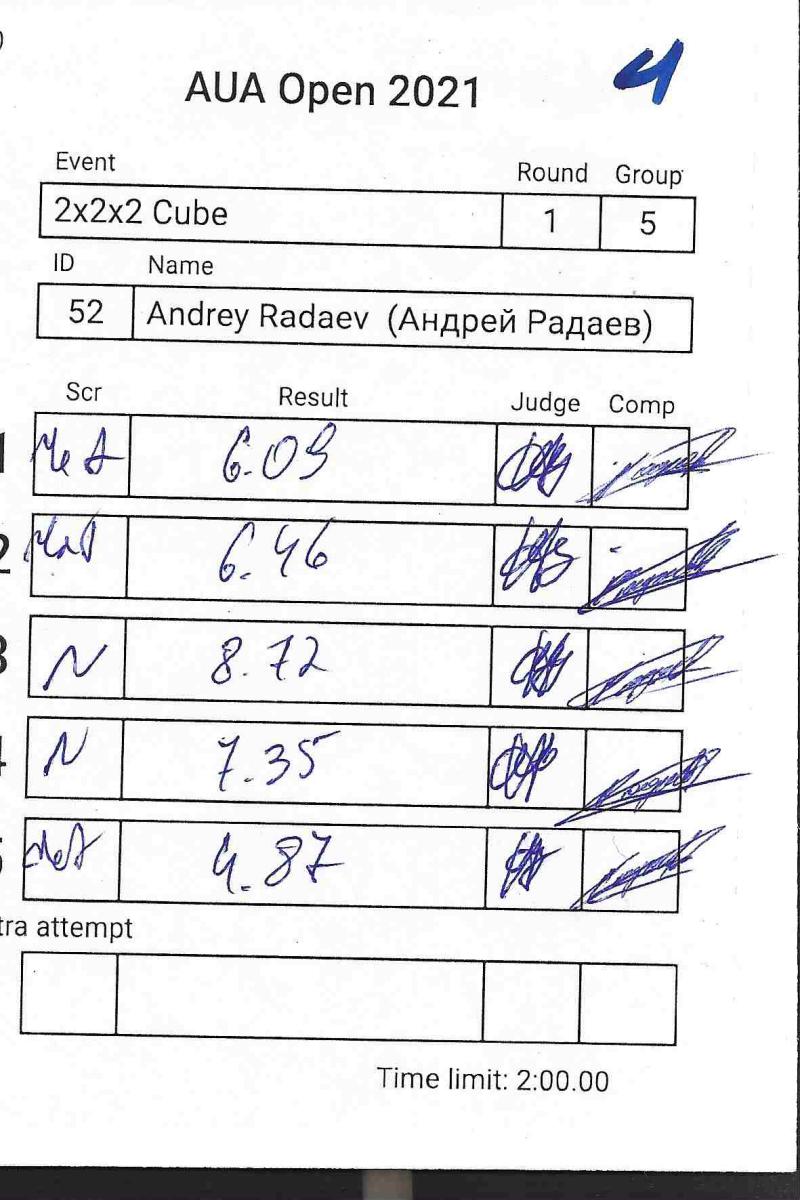 4
AUA Open 2021
Event Round Group
2x2x2 Cube 1 5
ID Name
52 Andrey Radaev (Андрей Радаев)
Scr Result Judge Comp
1 6.09
2 6.46
3 N 8.72
4 N 7.35
5 4.87
tra attempt
Time limit: 2:00.00